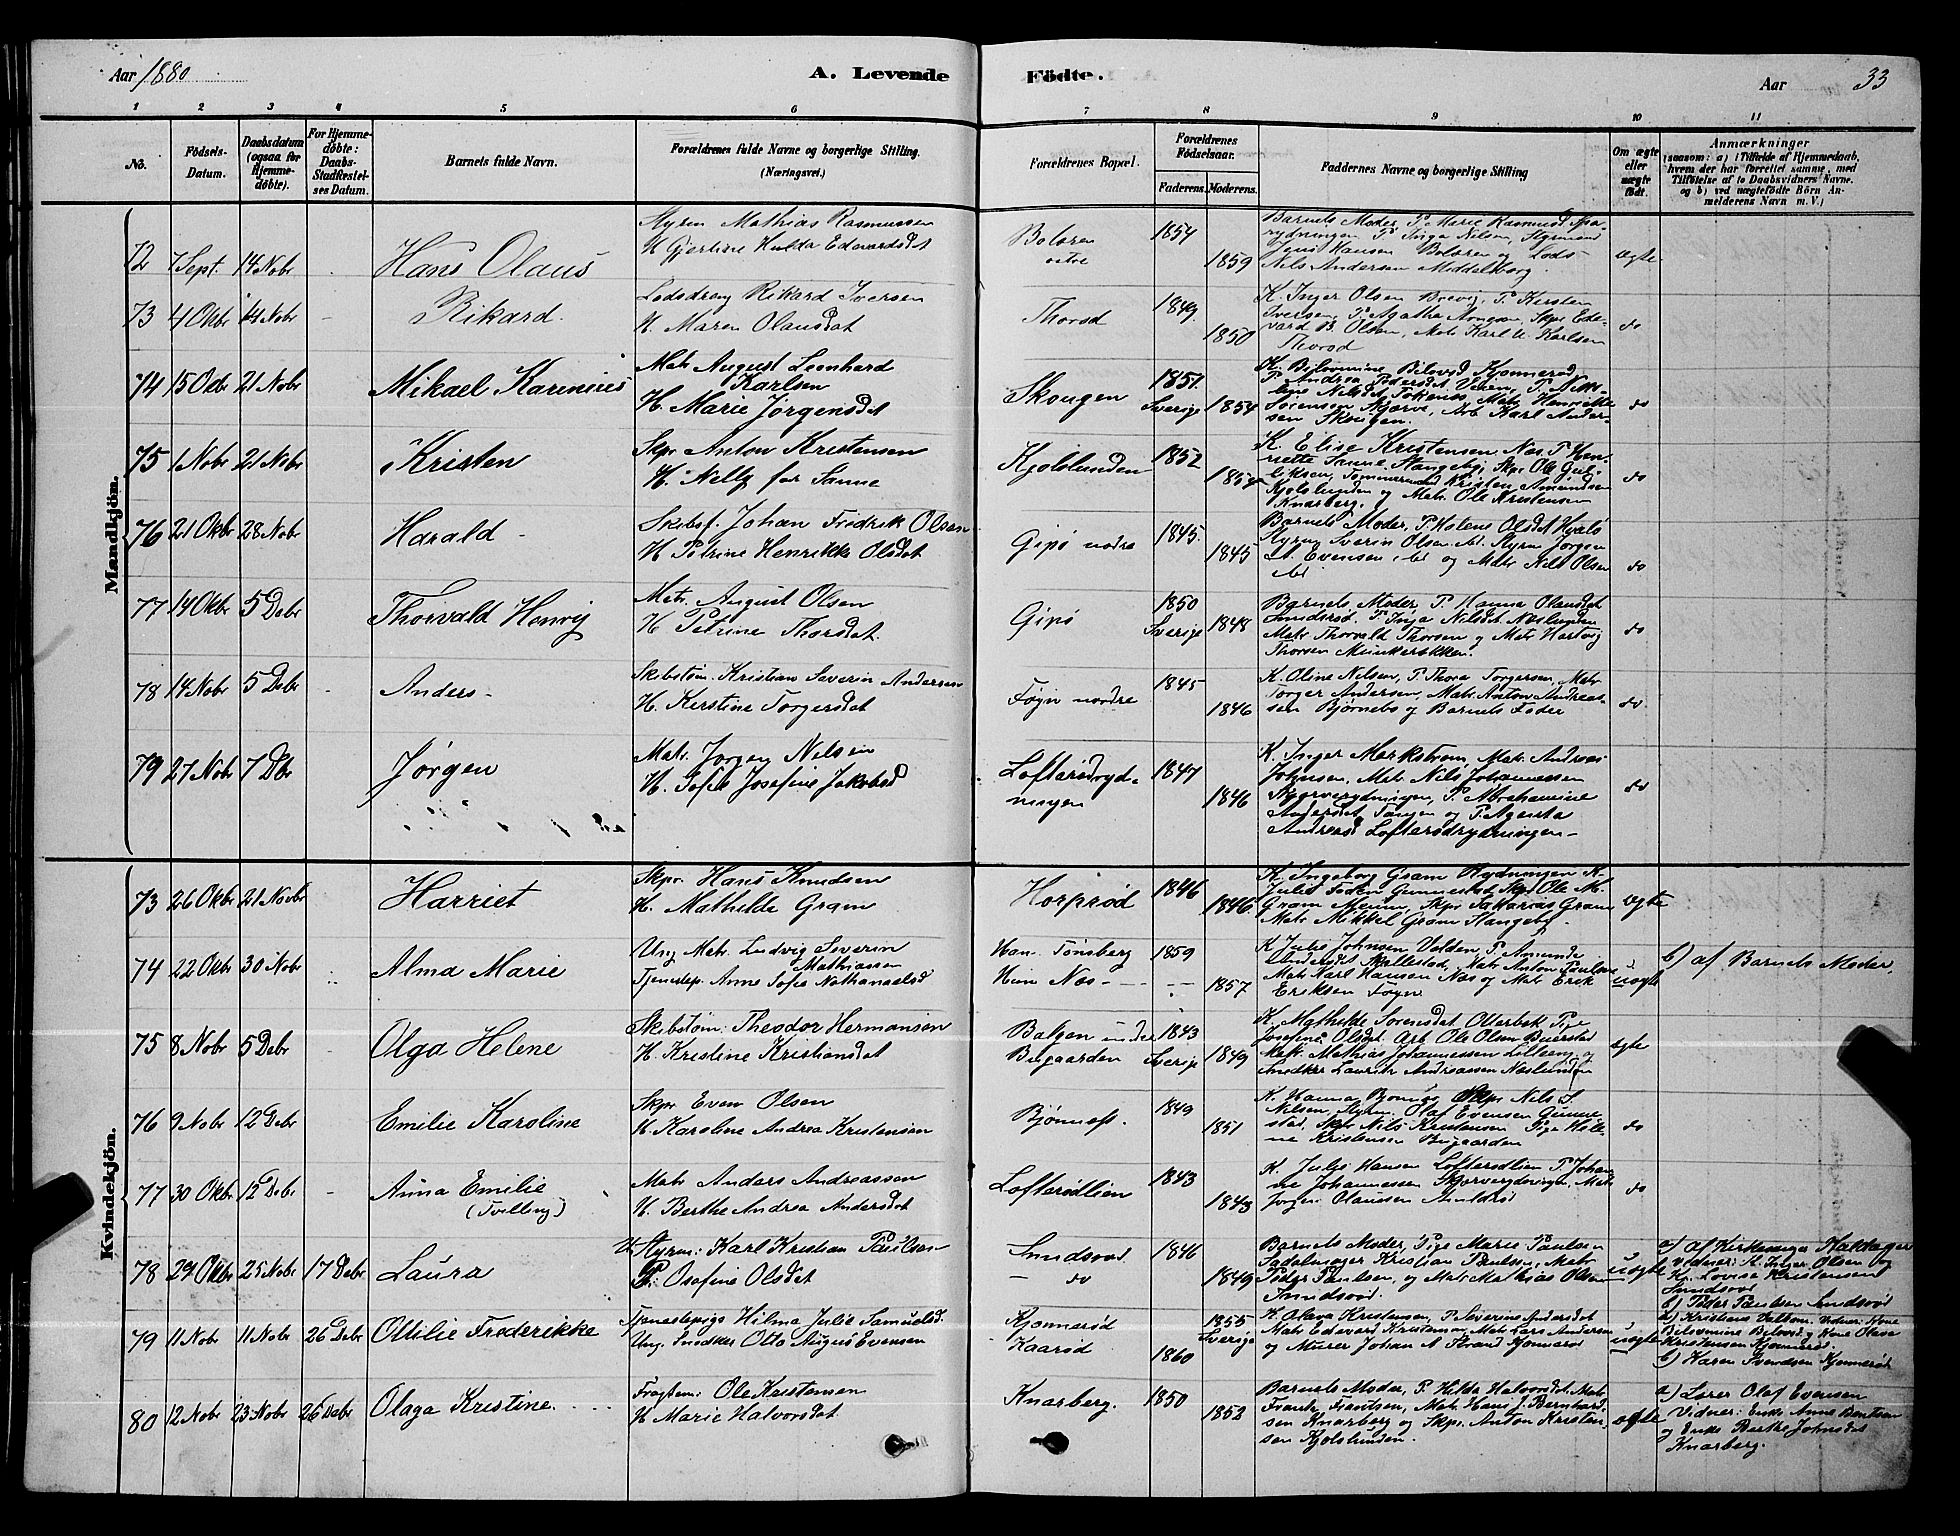 Aar 1880
A. Levende
Fødte.
Aar
33
1 2 3 4 5 6 7 8 9 10 11
No.
Fødsels-Datum.
Daabsdatum (ogsaa for Hjemmedøbte).
For Hjemmedøbte: Daabs-Stadfæstelses Datum.
Barnets fulde Navn.
Forældrenes fulde Navne og borgerlige Stilling. (Næringsvei.)
Forældrenes Bopæl.
Forældrenes Fødselsaar.
Faderens. Moderens.
Faddernes Navne og borgerlige Stilling
Om ægte eller uægte født.
Anmærkninger
(saasom: a) i Tilfælde af Hjemmedaab, hvem der har forrettet samme, med Tilføielse af to Daabsvidners Navne. og b) ved uægtefødte Børn Anmelderens Navn m. V.)
Mandkjön.
72 7 Sept. 14 Nobr Hans Olaus
Styrm Mathias Rasmussen
H. Gjertine Hulda Edvardsdt
Bolæren østre
1854
1859
Barnets Moder, P. Marie
P. Inga Nilsen, Styrmand
Jens Hansen Bolæren og Lods
Nils Andersen Middelborg.
ægte
73 4 Oktbr 14 Nobr Rikard.
Lodsdreng Rikard Iversen
H. Maren Olausdat
Thorød
1849.
1850
K. Inger Olsen Brevig, P. Kirsten
Iversen, P. Agathe Arnesen, Skpr Ede-
vard B. Olsen, Matr Karl U. Karlsen
Thorød
do
74 15 Octbr 21 Nobr Mikael Karenius
Matr August Leonhard
Karlsen
H. Marie Jørgensdt
Skougen
1851.
Sverige 1854
K. Bilovmine Bilovsd Kjønnerød,
P. Andrea Pedersdt Veien, P. Niko-
line Nilsdt Tokenes, Matr Henrik
Sørensen Skjerve, Arb Karl Ander-
sen Skougen.
do
75 1 Nobr 21 Nobr Kristen
Skpr Anton Kristensen
H. Nelly før Sanne
Kjølslunden
1852
1857
K. Elise Kristensen Næs, P. Hen-
riette Sanne, Stangeby, Skpr Ole Gul-
liksen, Tømmermand Kristen Amundsen
Kjølslunden og Matr. Ole Kristensen
Knarberg.
do
76 21 Oktbr 28 Nobr Harald -
Skibsf. Johan Fredrik Olsen
H. Petrine Henrikke Olsdat
Gipø nodre
1845.
1845
Barnets Moder, P. Helene Olsdt Hvals
Styrm Sverin Olsen ibd. Styrm Jørgen
A. Evensen ibd og Matr Nils Olsen
ibd
do
77 14 Oktbr 5 Debr Thorvald Henrij
Matr. August Olsen
H. Petrine Thorsdat.
Gipø
1850
Sverige 1848
Barnets Moder, P. Hanna Olausdat
Smidsrød, P. Inga Nilsdt Næslunden
Matr Thorvald Thorsen og Matr Hartvig
Thorsen Munkerekken.
do
78 14 Nobr 5 Debr Anders -
Skibstøm. Kristian Severin Andersen
H. Kerstine Torgersdat
Føyn nordre
1845
1846
K. Oline Nilsen, P. Thora Torgersen, Matr
Torger Andersen, Matr. Anton Andreas-
sen Bjørnebo og Barnets Fader
do
79 27 Nobr 7 Dbr Jørgen
Matr. Jørgen Nilsen
H. Sofie Josefine Jakobsd
Lofterødryd-
ningen
1847
1846
K. Inger Markstrøm, Matr Andreas
Johnsen, Matr. Nils Johannessen
Skjerverydningen, P. Abrahamine
Andersdt Tangen og P. Agneta
Andreasd Lofterødrydningen -
do
Kvindekjön.
73 26 Oktbr 21 Novbr Harriet
Skpr. Hans Knudsen
H. Mathilde Gram
Horprød
1846
1846.
K. Ingeborg Gram Rydningen K.
Julie Foden Gunnestad, Skpr Ole M.
Gram Meum, Skpr Sakarias Gram
Matr Mikkel Gram Stangeby.
ægte
74 22 Oktbr 30 Nobr Alma Marie
Ung. Matr. Ludvig Severin
Mathiassen
Tjenestep. Anne Sofie Nathanaelsd
Han. Tønsberg
Hun Næs -
1859
1857
K. Julie Johnsen Valden, P. Amunda
Andersdt Skallestad, Matr Anton Paulsen
Matr Karl Hansen Næs og Matr Erik
Eriksen Føyn.
uægte
b) af Barnets Moder.
75 8 Nobr 5 Debr Olga Helene
Skibstøm: Theodor Hermansen
H. Kristine Kristiansdat
Bolgen under
Bugaarden
1843
Sverige 1849
K. Mathilde Sorensdat Otterbek Pige
Josefine Olsdt. Arb Ole Olsen Buerstad
Matr. Mathias Johannessen Lilleeng og
Snedker Laurits Andreassen Næslunden
ægte
76 9 Nobr 12 Debr Emilie Karoline
Skpr. Even Olsen
H. Karoline Andrea Kristensen
Bjønness.
1849
1851
K. Hanna Bjønnes Skpr Nils S.
Nilsen, Styrm. Olaf Evensen Gunne-
stad, Skpr Nils Kristensen Pige Hele-
ne Kristensen Bugaarden
do
77 30 Oktbr 12 Debr Anna Emilie
(Tvilling)
Matr Anders Andreassen
H. Berthe Andrea Andersdat
Lofterødlien
1843
1843
K. Julie Hansen Lofterødlien P. Johan-
ne Johannessen Skjerverydningen, Matr
Jørgen Olaussen Smidsrød
do
78 29 Oktbr 25 Nobr 17 Debr Laura
U. Styrm: Karl Kristian Paulsen
P: Osefine Olsdat
Smidsrød
- do
1846
1849
Barnets Moder, Pige Marie Paulsen
Sadelmager Kristian Paulsen, Matr
Peder Paulsen, og Matr Mathias Olsen
Smidsrød.
uægte
a) af Kirkesanger
Vidner: K. Inger Olsen og
K. Lovise Kristensen
Smidsrød
b) Peder Paulsen Smidsrød
79 11 Nobr 11 Nobr 26 Debr Ottilie Frederikke
Tjenestepige Hilma Julie Samuelsd.
Ung. Snedker Otto August Evensen
Kjønnerød
Kaarød
1855
Sverige
1860
K Olava Kristensen, P. Severine Andersdt
Matr Edevard Kristensen, Matr Lars Andersen
og Murer Johan A. Strand Kjønnerød
uægte
a) Kristiane Vidner: Kone
Bilovmine Bilovsd og Kone Olava
Kristensen Kjønnerød.
b) Karen Svendsen Kjønnerød
80 12 Nobr 23 Nobr 26 Debr Olaga Kristine.
Fragtem: Ole Kristensen
H Marie Halvorsdat
Knarberg.
1850
1852
Barnets Moder, P. Hilda Halvorsdat, Matr
Frants Frantsen, Matr Hans J. Bernhard-
sen Knarberg og Skpr. Anton Kristen-
sen Kjølslunden.
ægte
a) Lærer Olaf Evensen
Vidner: Enke Anne Berntsen
og Enke Berthe Johnsdat
Knarberg.